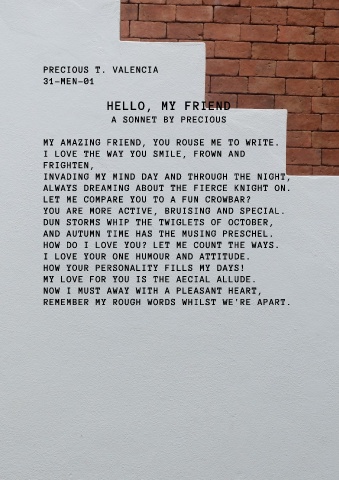 PRECIOUS T. VALENCIA
31-MEN-01
HELLO, MY FRIEND
A SONNET BY PRECIOUS
MY AMAZING FRIEND, YOU ROUSE ME TO WRITE.
I LOVE THE WAY YOU SMILE, FROWN AND
FRIGHTEN,
INVADING MY MIND DAY AND THROUGH THE NIGHT,
ALWAYS DREAMING ABOUT THE FIERCE KNIGHT ON.
LET ME COMPARE YOU TO A FUN CROWBAR?
YOU ARE MORE ACTIVE, BRUISING AND SPECIAL.
DUN STORMS WHIP THE TWIGLETS OF OCTOBER,
AND AUTUMN TIME HAS THE MUSING PRESCHEL.
HOW DO I LOVE YOU? LET ME COUNT THE WAYS.
I LOVE YOUR ONE HUMOUR AND ATTITUDE.
HOW YOUR PERSONALITY FILLS MY DAYS!
MY LOVE FOR YOU IS THE AECIAL ALLUDE.
NOW I MUST AWAY WITH A PLEASANT HEART,
REMEMBER MY ROUGH WORDS WHILST WE'RE APART.